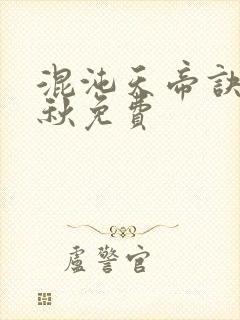 混沌天帝訣
秋免費
盧警官